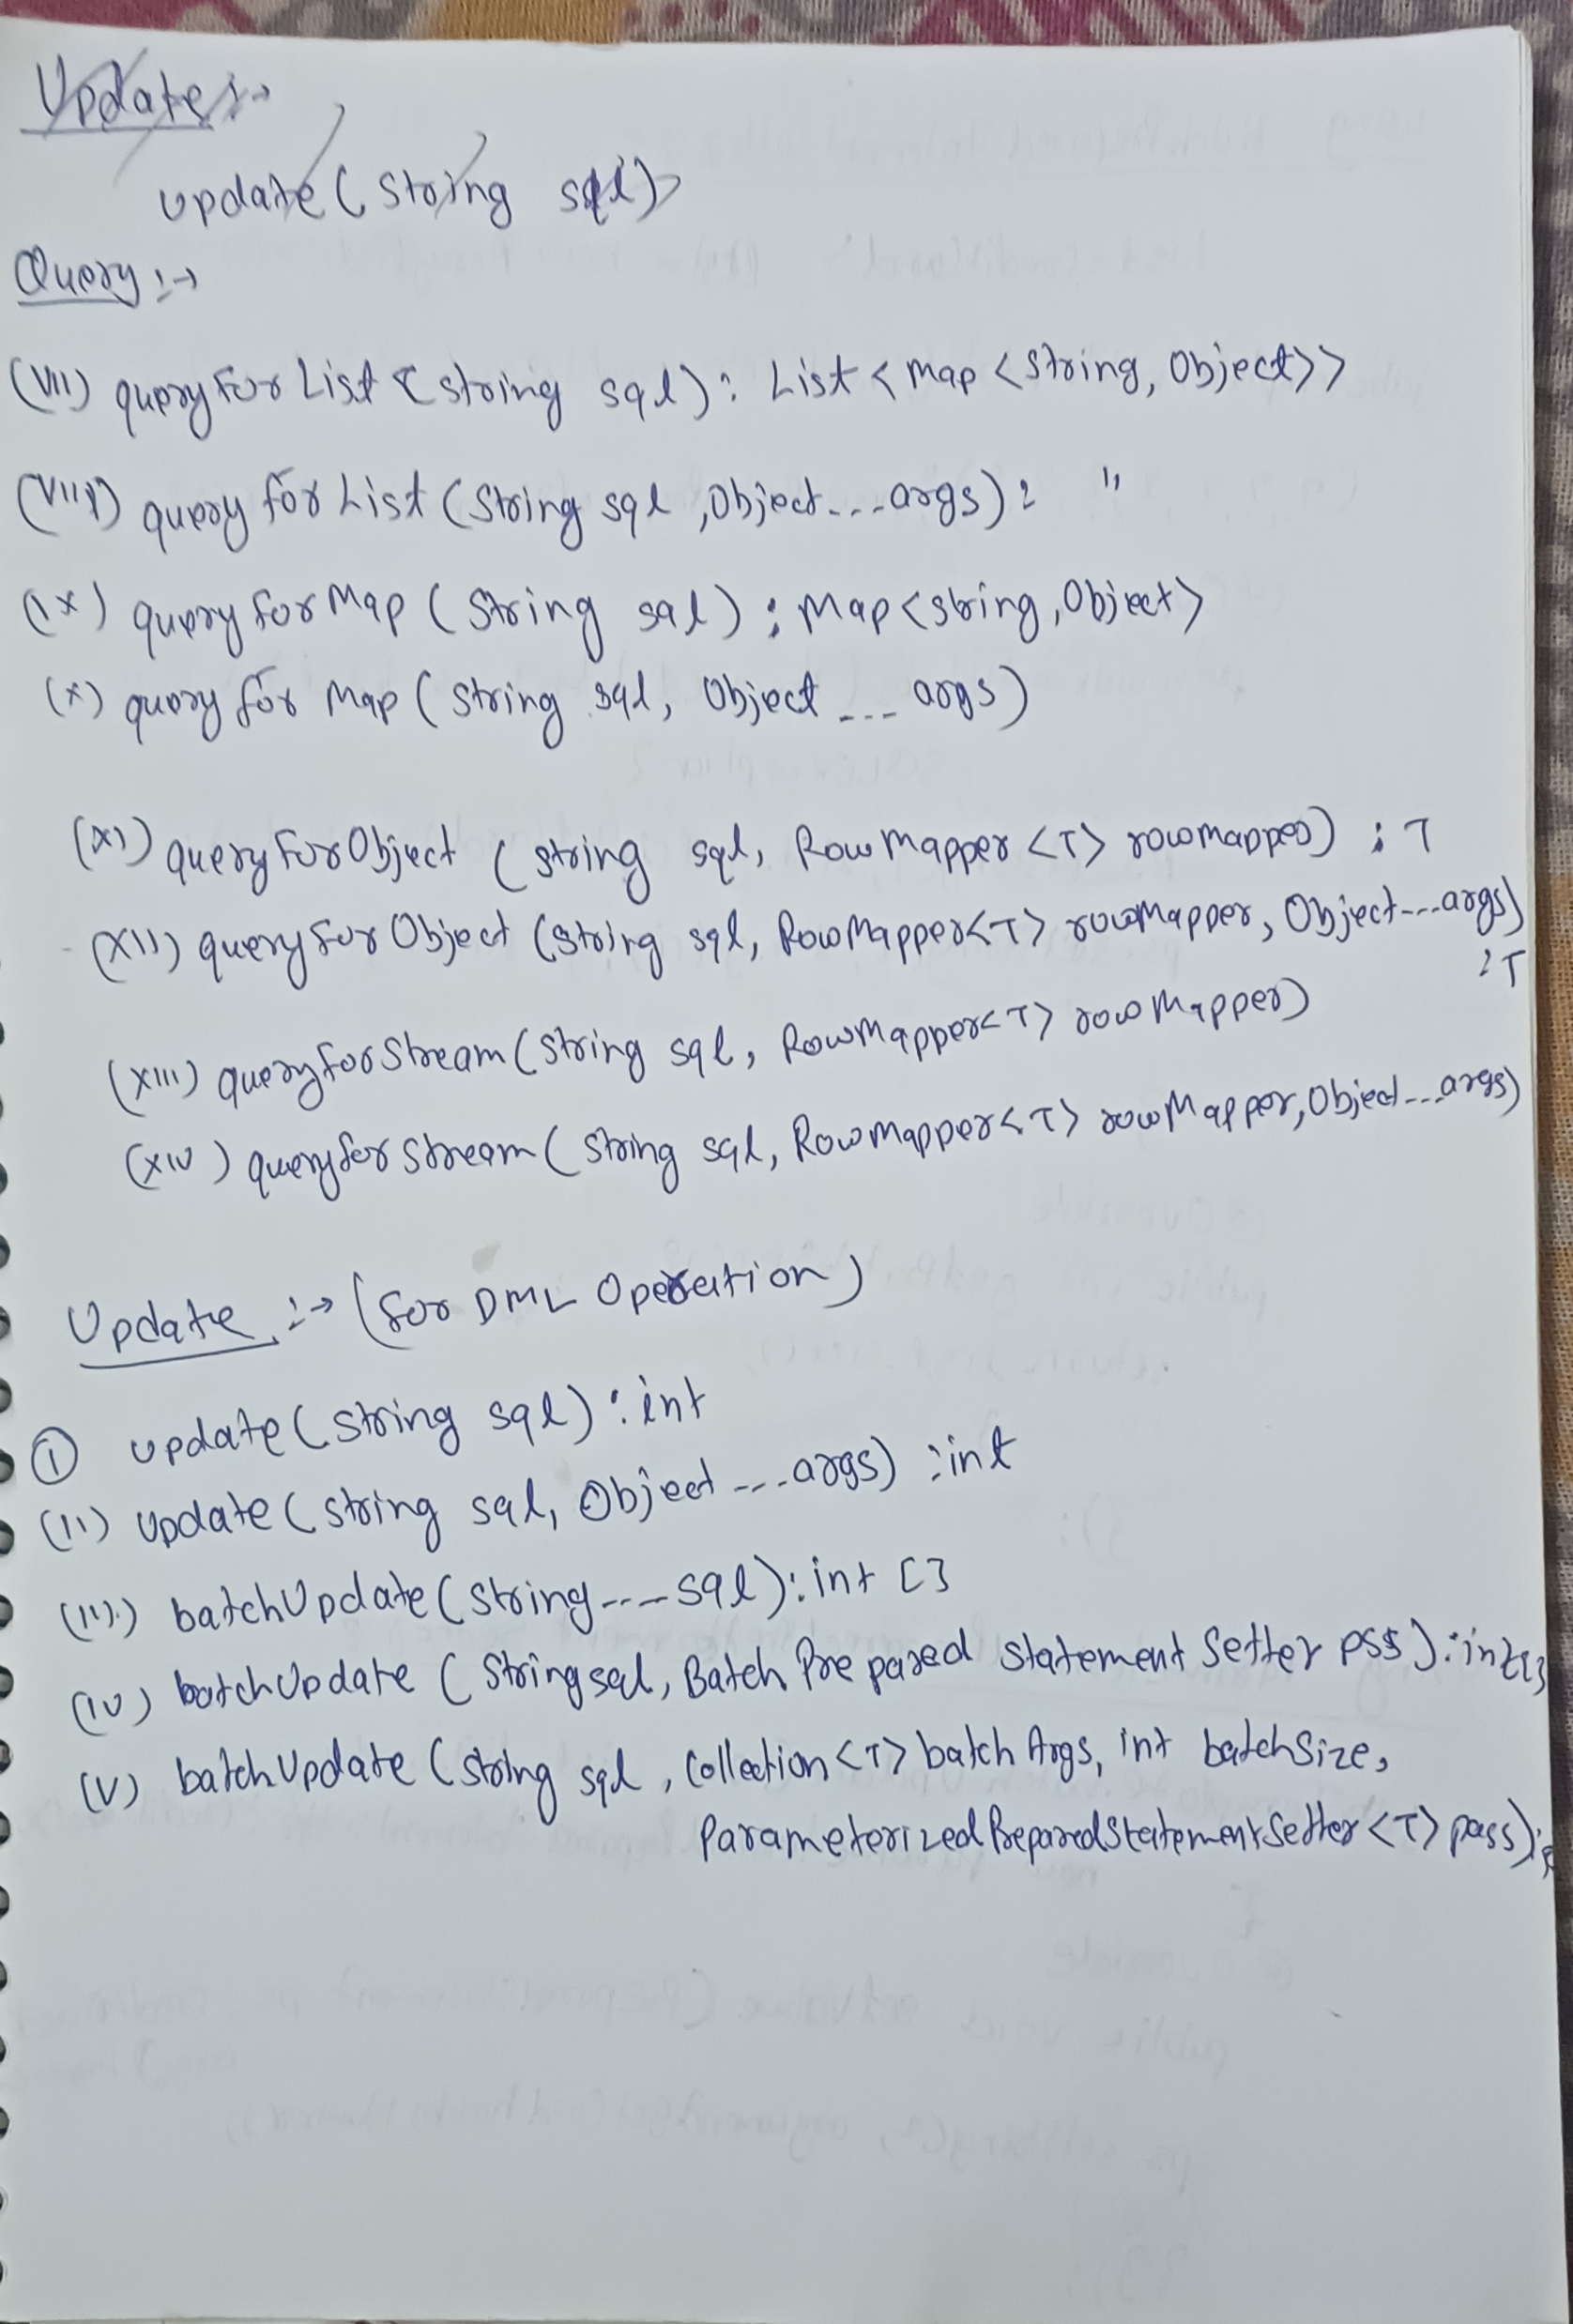 Update :->
update (String sql)
Query :->
(VII) queryForList (String sql) : List < Map <String, Object>>
(VIII) queryForList (String sql ,Object....args) : "
(IX) queryForMap (String sql) : Map <String, Object>
(X) queryForMap (String sql, Object .... args)
(XI) queryForObject (String sql, RowMapper <T> rowMapper) : T
(XII) queryForObject (String sql, RowMapper<T> rowMapper, Object....args)
: T
(XIII) queryForStream (String sql, RowMapper<T> rowMapper)
(XIV) queryForStream (String sql, RowMapper<T> rowMapper, Object....args)
Update :-> (for DML Operation)
(I) update (String sql) : int
(II) update (String sql, Object ....args) : int
(III) batchUpdate (String....sql) : int []
(IV) batchUpdate (String sql, BatchPreparedStatementSetter pss) : int[]
(V) batchUpdate (String sql, Collection <T> batchArgs, int batchSize,
ParameterizedPreparedStatementSetter <T> pass) :